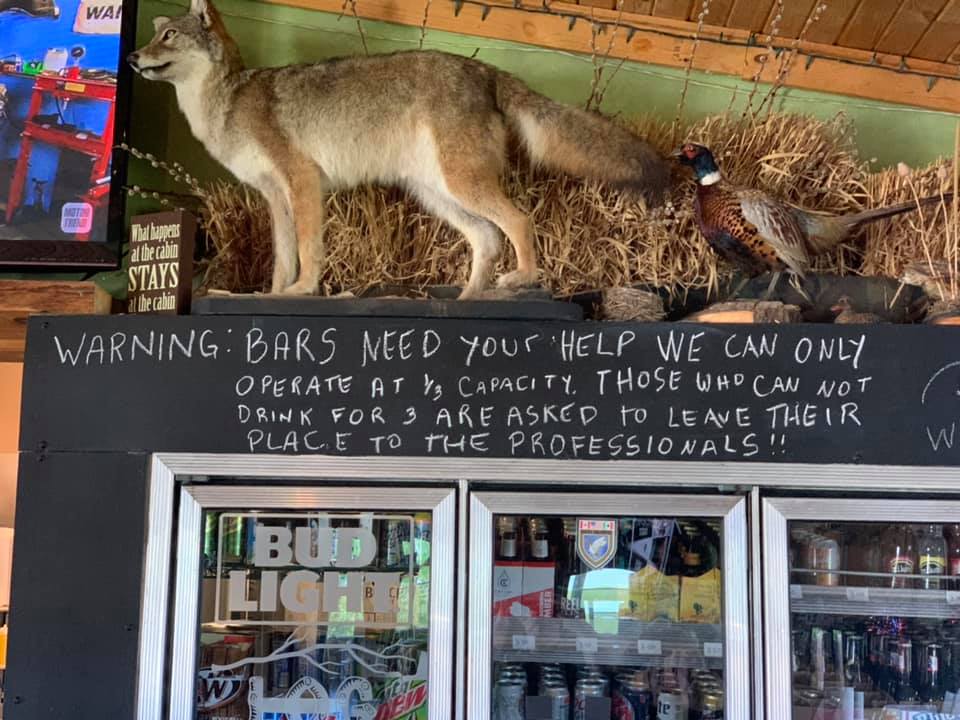 WAR
MOTOR
TREND
What happens
at the cabin
STAYS
at the cabin
WARNING: BARS NEED YOUr HELP WE CAN ONLY
OPERATE AT 1/3 CAPACITY. THOSE WHO CAN NOT
DRINK FOR 3 ARE ASKED to LEAVE THEIR
PLACE TO THE PROFESSIONALS!!
W
BUD
LIGHT
W
DEW